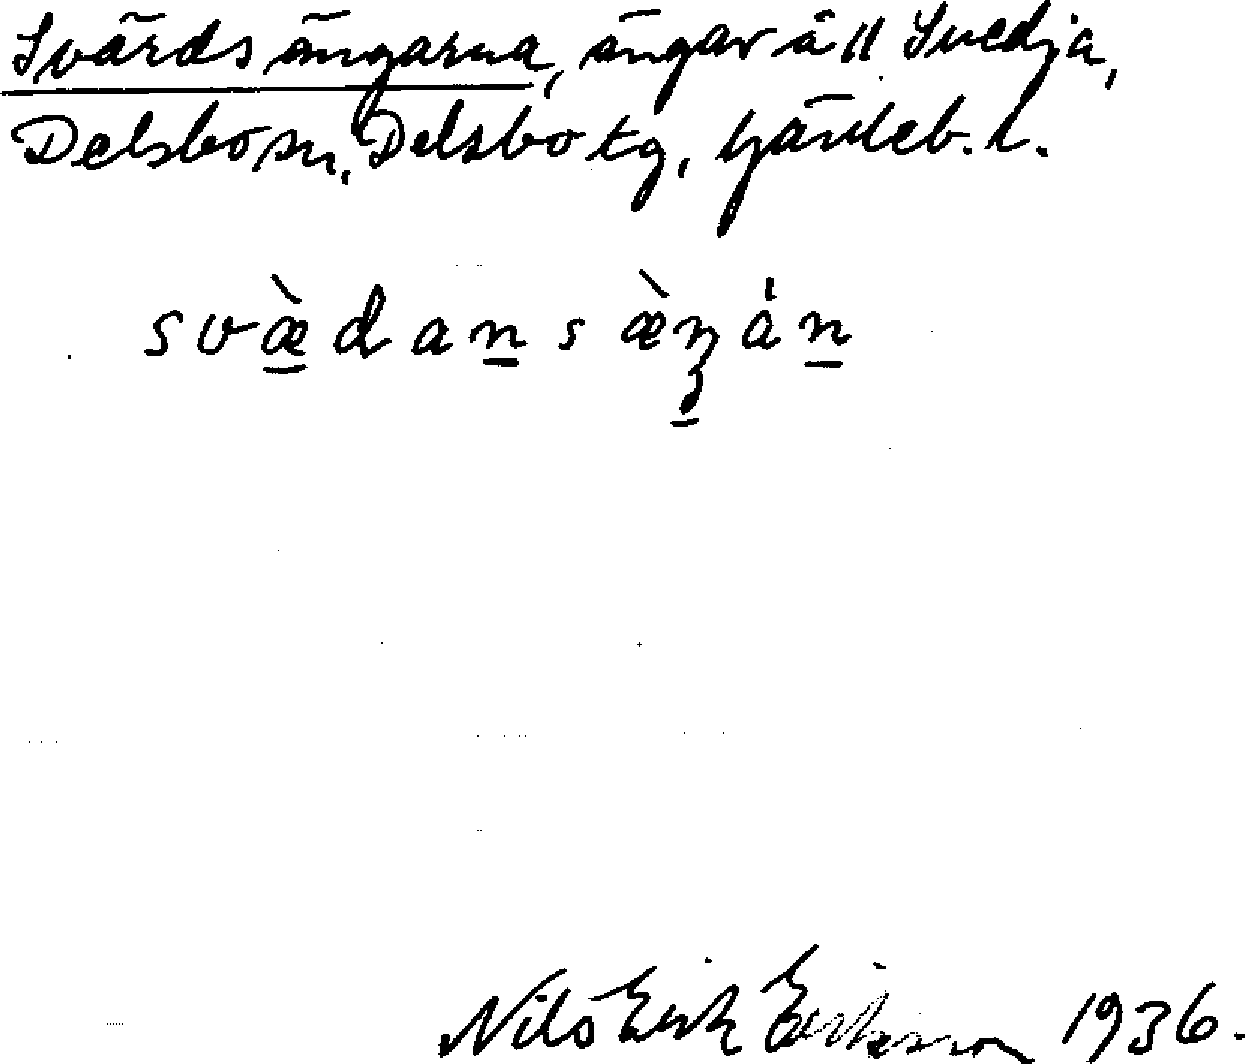 Svärdsängarna, ängar å ll Svedja,
Delsbo sn, Delsbo tg, Gävleb. l.
svæ̀dansæ̀ŋán
Nils Erik Eriksson 1936.